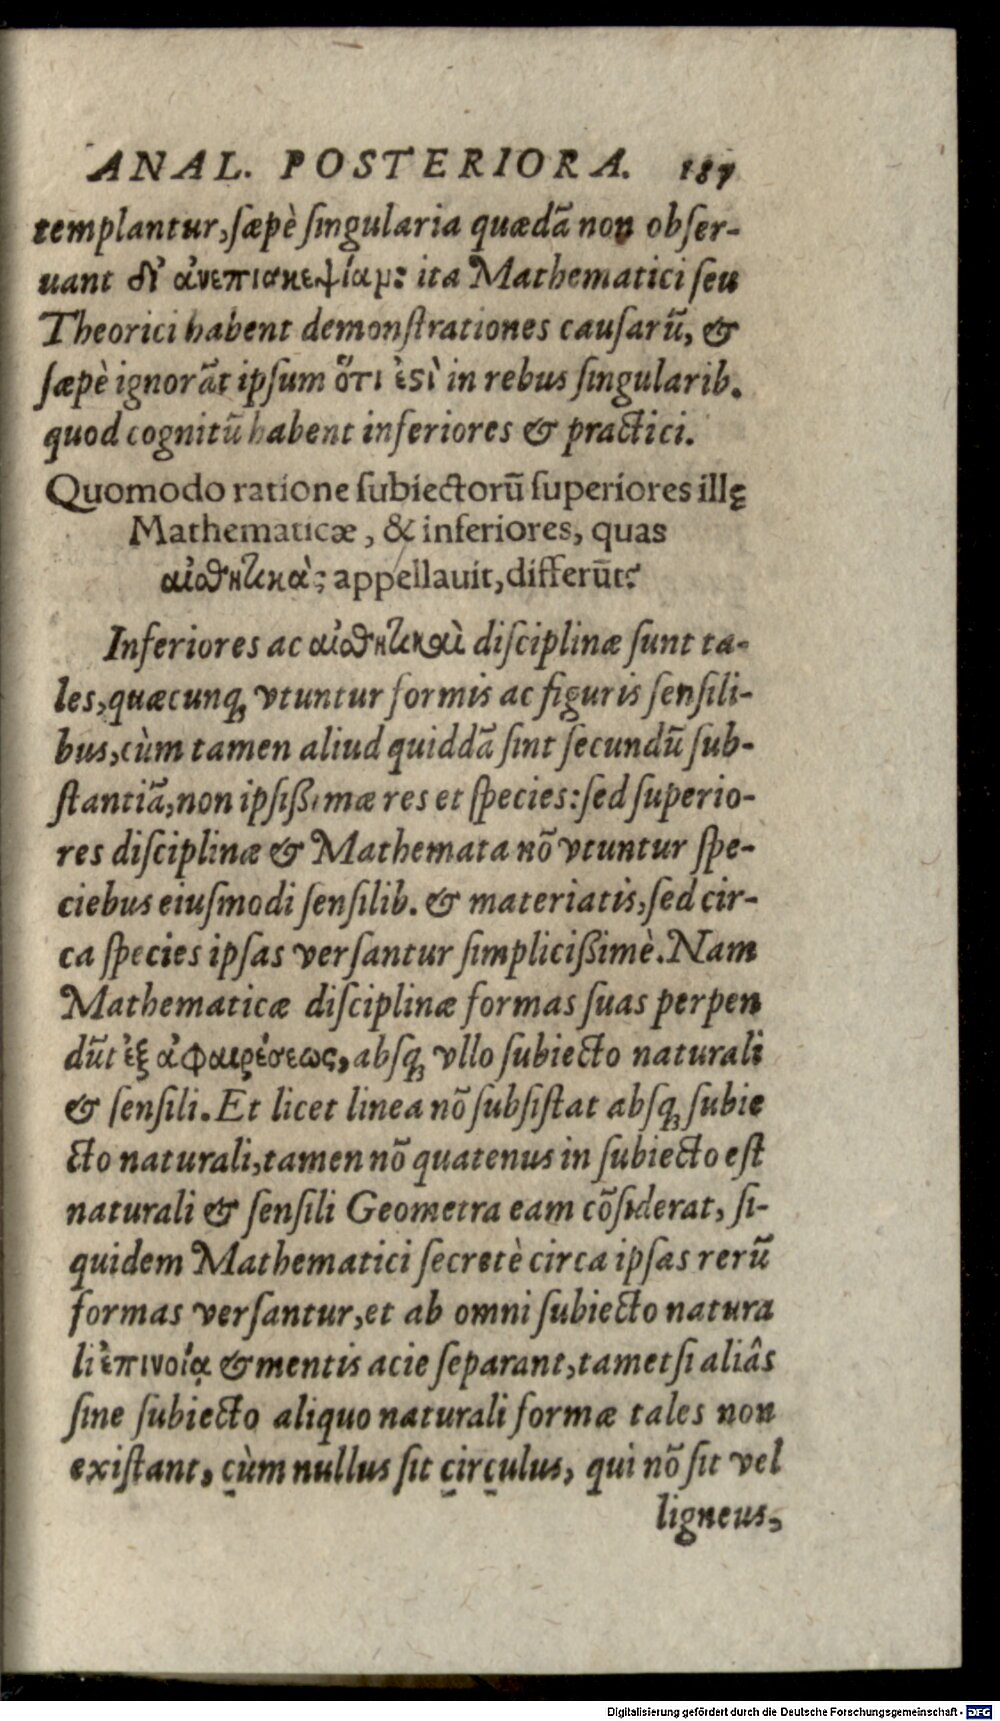 ANAL. POSTERIORA. 187
templantur, sæpè singularia quædā non obser-
uant δι' ἀνεπισκεψίαν: ita Mathematici seu
Theorici habent demonstrationes causarū, &
sæpè ignorāt ipsum ὅτι ἐστὶ in rebus singularib.
quod cognitū habent inferiores & practici.
Quomodo ratione subiectorū superiores illę
Mathematicæ, & inferiores, quas
αἰσθητικὰς appellauit, differūt?
Inferiores ac αἰσθητικαὶ disciplinæ sunt ta-
les, quæcunq; vtuntur formis ac figuris sensili-
bus, cùm tamen aliud quiddā sint secundū sub-
stantiā, non ipsißimæ res et species: sed superio-
res disciplinæ & Mathemata nō vtuntur spe-
ciebus eiusmodi sensilib. & materiatis, sed cir-
ca species ipsas versantur simplicißimè. Nam
Mathematicæ disciplinæ formas suas perpen
dūt ἐξ ἀφαιρέσεως, absq; vllo subiecto naturali
& sensili. Et licet linea nō subsistat absq; subie
cto naturali, tamen nō quatenus in subiecto est
naturali & sensili Geometra eam cōsiderat, si-
quidem Mathematici secretè circa ipsas rerū
formas versantur, et ab omni subiecto natura
li ἐπινοίᾳ & mentis acie separant, tametsi aliâs
sine subiecto aliquo naturali formæ tales non
existant, cùm nullus sit circulus, qui nō sit vel
ligneus,
Digitalisierung gefördert durch die Deutsche Forschungsgemeinschaft - DFG